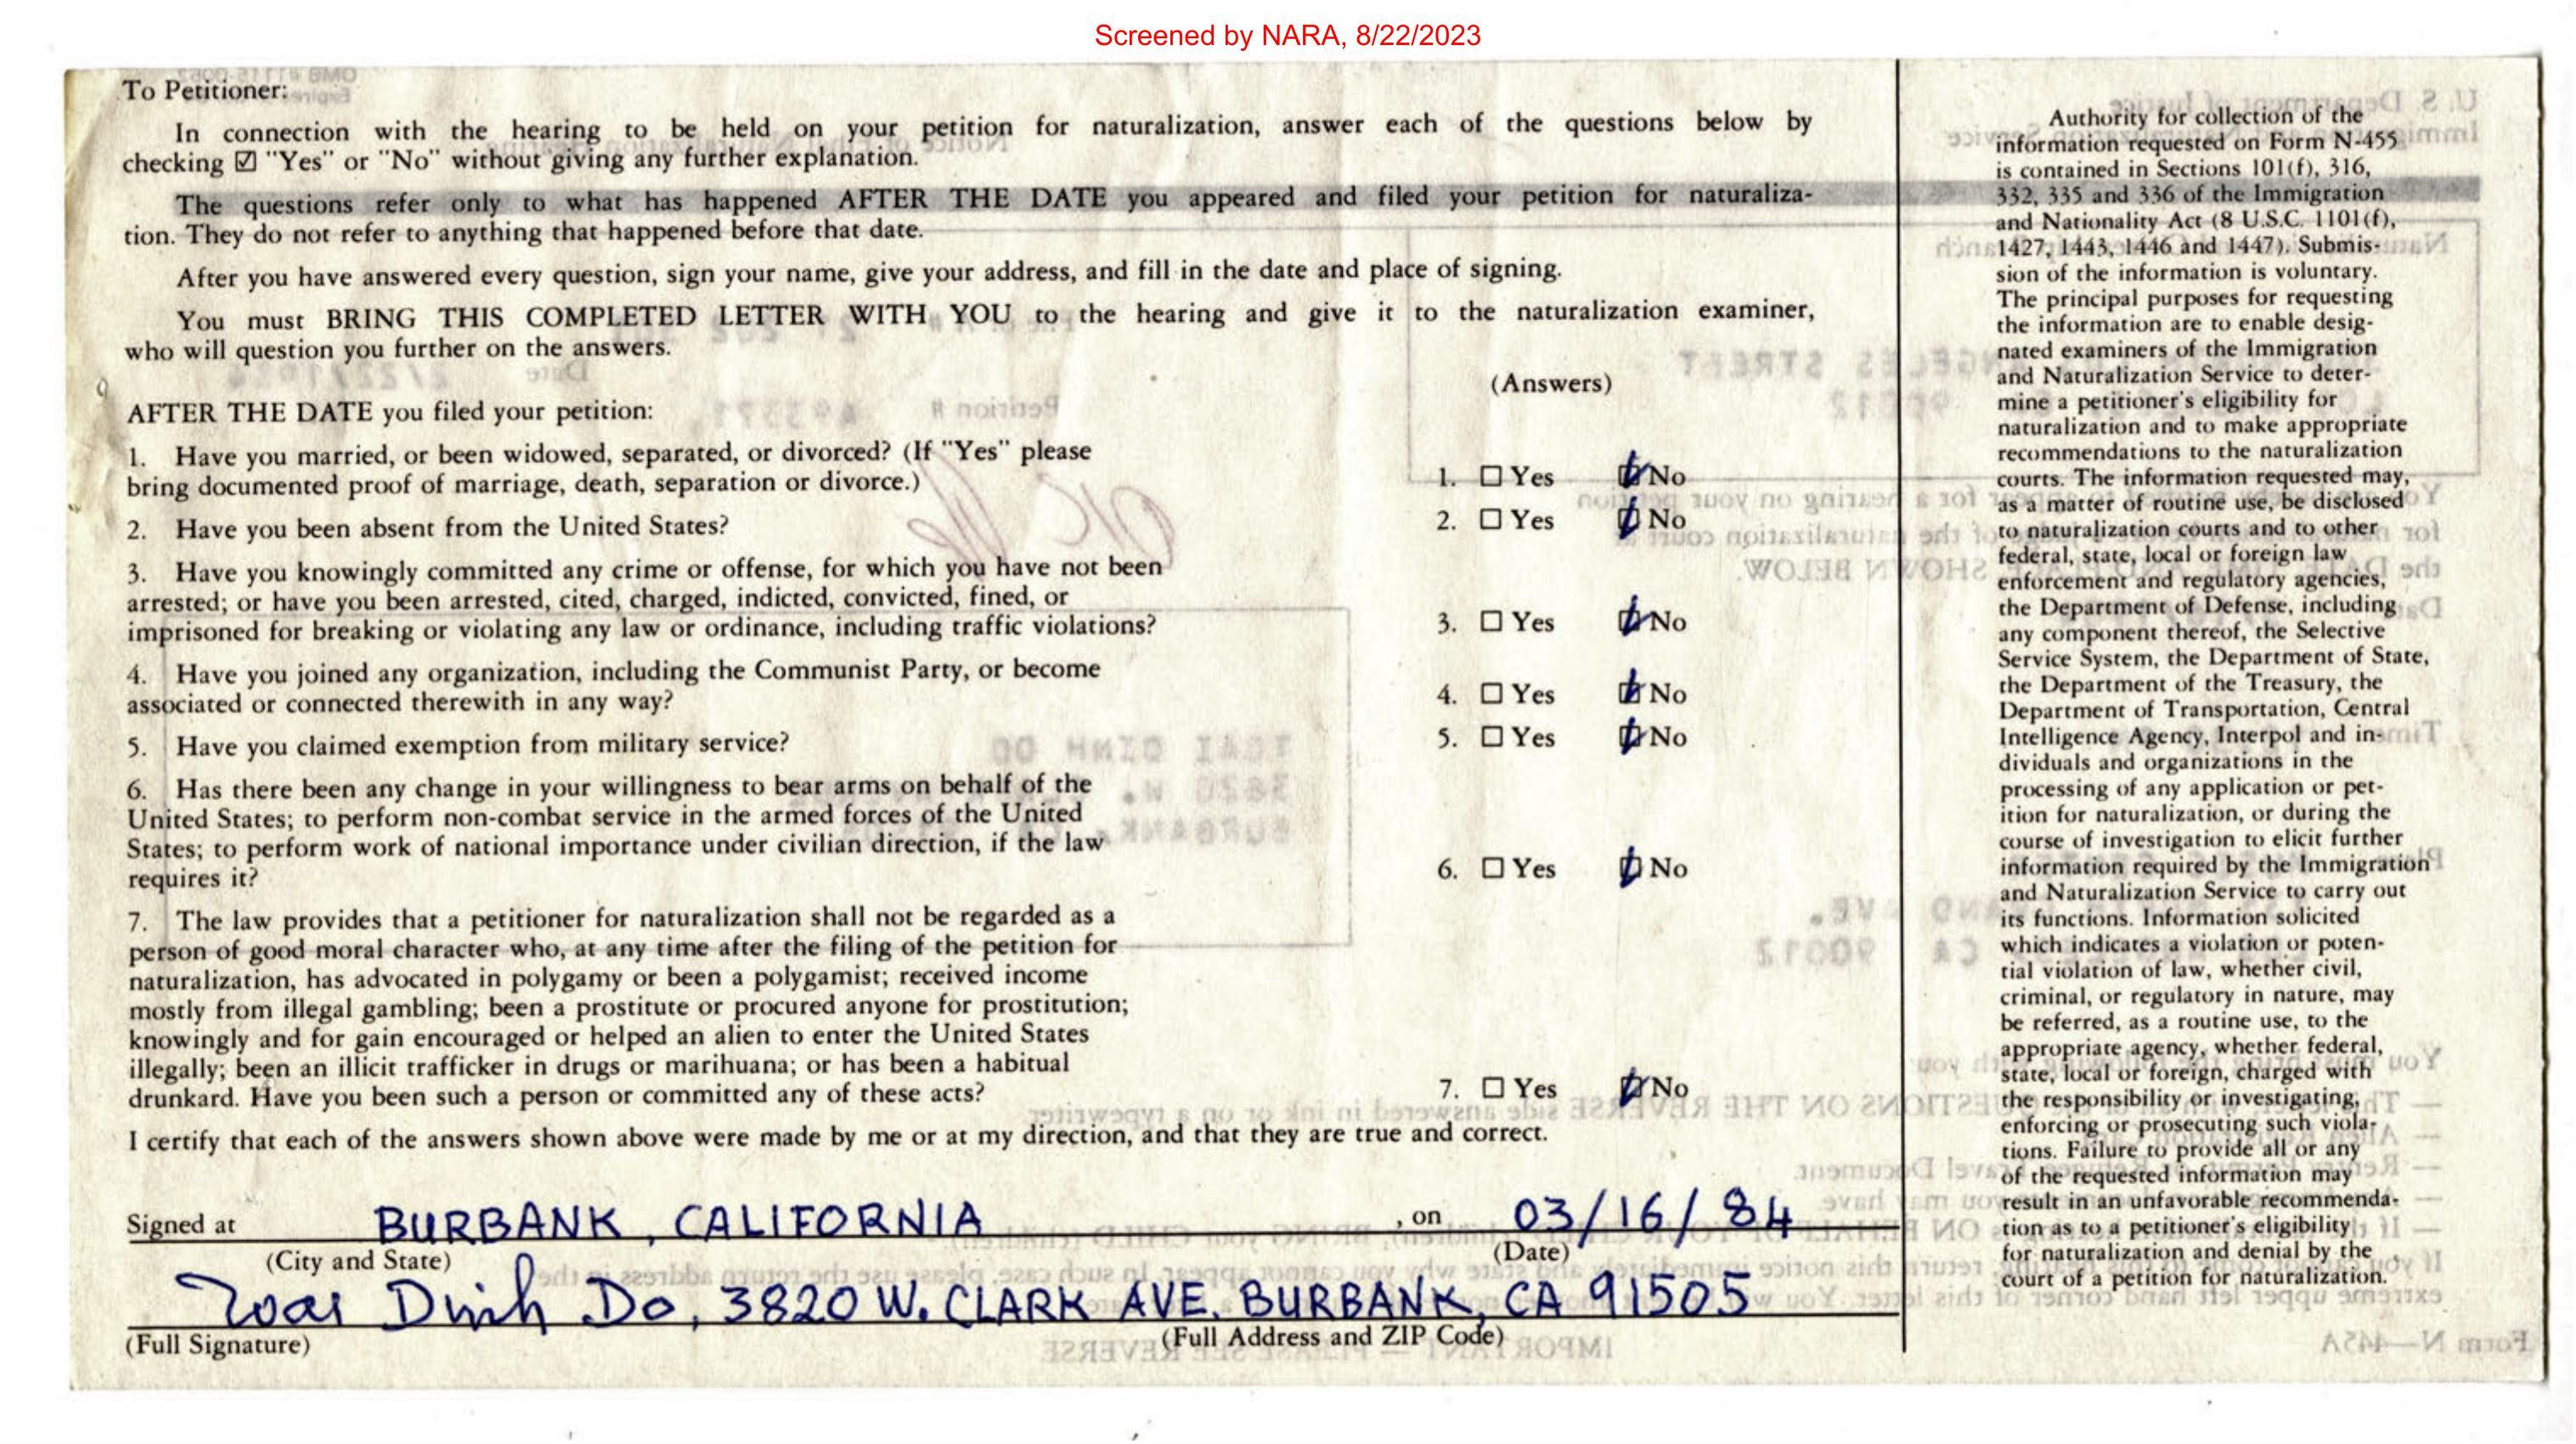 Screened by NARA, 8/22/2023
To Petitioner:
In connection with the hearing to be held on your petition for naturalization, answer each of the questions below by
checking ☑ "Yes" or "No" without giving any further explanation.
The questions refer only to what has happened AFTER THE DATE you appeared and filed your petition for naturaliza-
tion. They do not refer to anything that happened before that date.
After you have answered every question, sign your name, give your address, and fill in the date and place of signing.
You must BRING THIS COMPLETED LETTER WITH YOU to the hearing and give it to the naturalization examiner,
who will question you further on the answers.
(Answers)
AFTER THE DATE you filed your petition:
1. Have you married, or been widowed, separated, or divorced? (If "Yes" please
bring documented proof of marriage, death, separation or divorce.)
1. ☐ Yes ☑ No
2. Have you been absent from the United States?
2. ☐ Yes ☑ No
3. Have you knowingly committed any crime or offense, for which you have not been
arrested; or have you been arrested, cited, charged, indicted, convicted, fined, or
imprisoned for breaking or violating any law or ordinance, including traffic violations?
3. ☐ Yes ☑ No
4. Have you joined any organization, including the Communist Party, or become
associated or connected therewith in any way?
4. ☐ Yes ☑ No
5. Have you claimed exemption from military service?
5. ☐ Yes ☑ No
6. Has there been any change in your willingness to bear arms on behalf of the
United States; to perform non-combat service in the armed forces of the United
States; to perform work of national importance under civilian direction, if the law
requires it?
6. ☐ Yes ☑ No
7. The law provides that a petitioner for naturalization shall not be regarded as a
person of good moral character who, at any time after the filing of the petition for
naturalization, has advocated in polygamy or been a polygamist; received income
mostly from illegal gambling; been a prostitute or procured anyone for prostitution;
knowingly and for gain encouraged or helped an alien to enter the United States
illegally; been an illicit trafficker in drugs or marihuana; or has been a habitual
drunkard. Have you been such a person or committed any of these acts?
7. ☐ Yes ☑ No
I certify that each of the answers shown above were made by me or at my direction, and that they are true and correct.
Signed at BURBANK, CALIFORNIA , on 03/16/84
(City and State) (Date)
Toai Dinh Do, 3820 W. CLARK AVE. BURBANK, CA 91505
(Full Signature) (Full Address and ZIP Code)
Authority for collection of the
information requested on Form N-455
is contained in Sections 101(f), 316,
332, 335 and 336 of the Immigration
and Nationality Act (8 U.S.C. 1101(f),
1427, 1443, 1446 and 1447). Submis-
sion of the information is voluntary.
The principal purposes for requesting
the information are to enable desig-
nated examiners of the Immigration
and Naturalization Service to deter-
mine a petitioner's eligibility for
naturalization and to make appropriate
recommendations to the naturalization
courts. The information requested may,
as a matter of routine use, be disclosed
to naturalization courts and to other
federal, state, local or foreign law
enforcement and regulatory agencies,
the Department of Defense, including
any component thereof, the Selective
Service System, the Department of State,
the Department of the Treasury, the
Department of Transportation, Central
Intelligence Agency, Interpol and in-
dividuals and organizations in the
processing of any application or pet-
ition for naturalization, or during the
course of investigation to elicit further
information required by the Immigration
and Naturalization Service to carry out
its functions. Information solicited
which indicates a violation or poten-
tial violation of law, whether civil,
criminal, or regulatory in nature, may
be referred, as a routine use, to the
appropriate agency, whether federal,
state, local or foreign, charged with
the responsibility or investigating,
enforcing or prosecuting such viola-
tions. Failure to provide all or any
of the requested information may
result in an unfavorable recommenda-
tion as to a petitioner's eligibility
for naturalization and denial by the
court of a petition for naturalization.